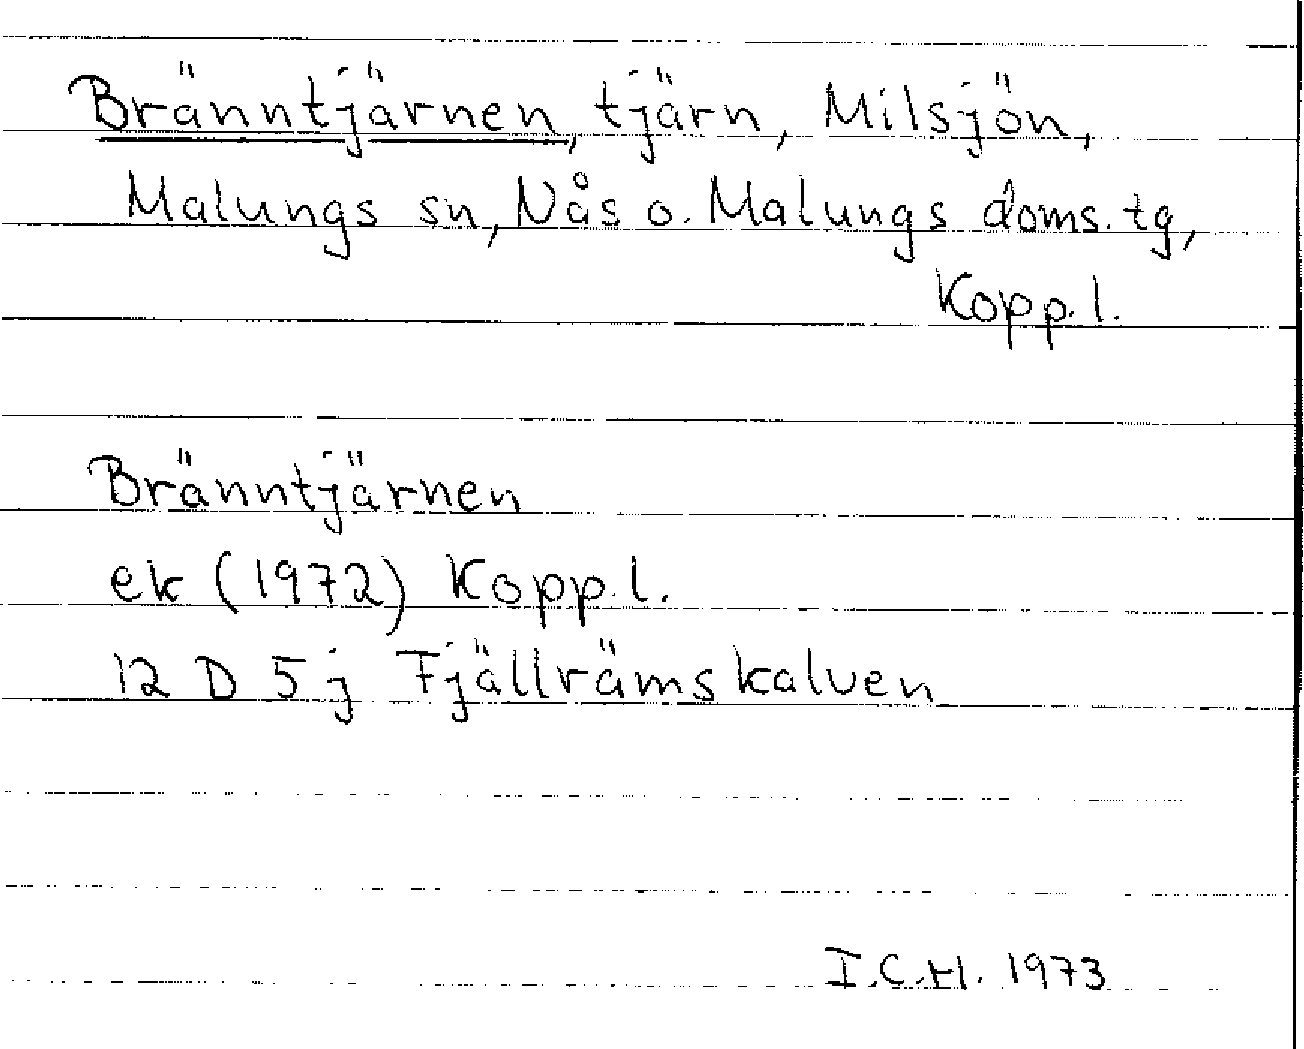 Bränntjärnen, tjärn, Milsjön,
Malungs sn, Nås o. Malungs doms. tg,
Kopp. l.
Bränntjärnen
ek (1972) Kopp. l.
12 D 5 j Fjällrämskalven
I.C.H. 1973